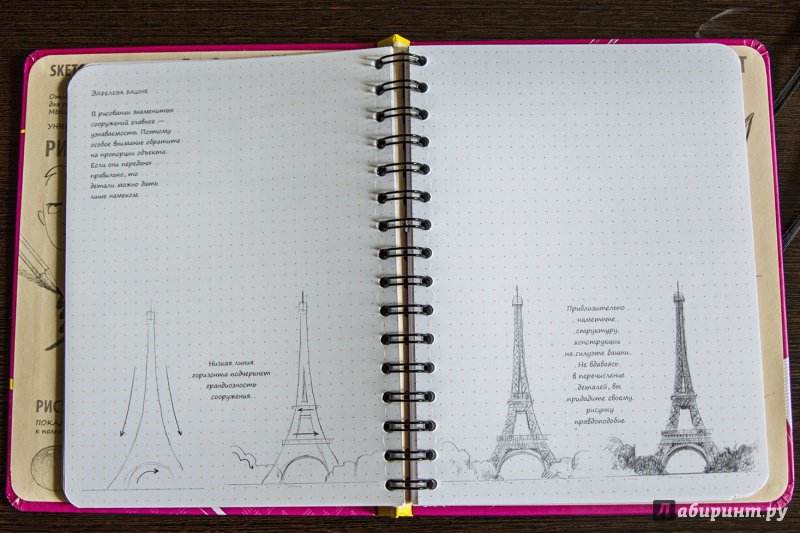 SKET
Эйфелева башня
В рисовании знаменитых
сооружений главное —
узнаваемость. Поэтому
особое внимание обратите
на пропорции объекта.
Если они переданы
правильно, то
детали можно дать
лишь намеком.
Низкая линия
горизонта подчеркнет
грандиозность
сооружения.
Приблизительно
наметьте
структуру
конструкции
на силуэте башни.
Не вдаваясь
в перечисление
деталей, вы
придадите своему
рисунку
правдоподобие.
Лабиринт.ру